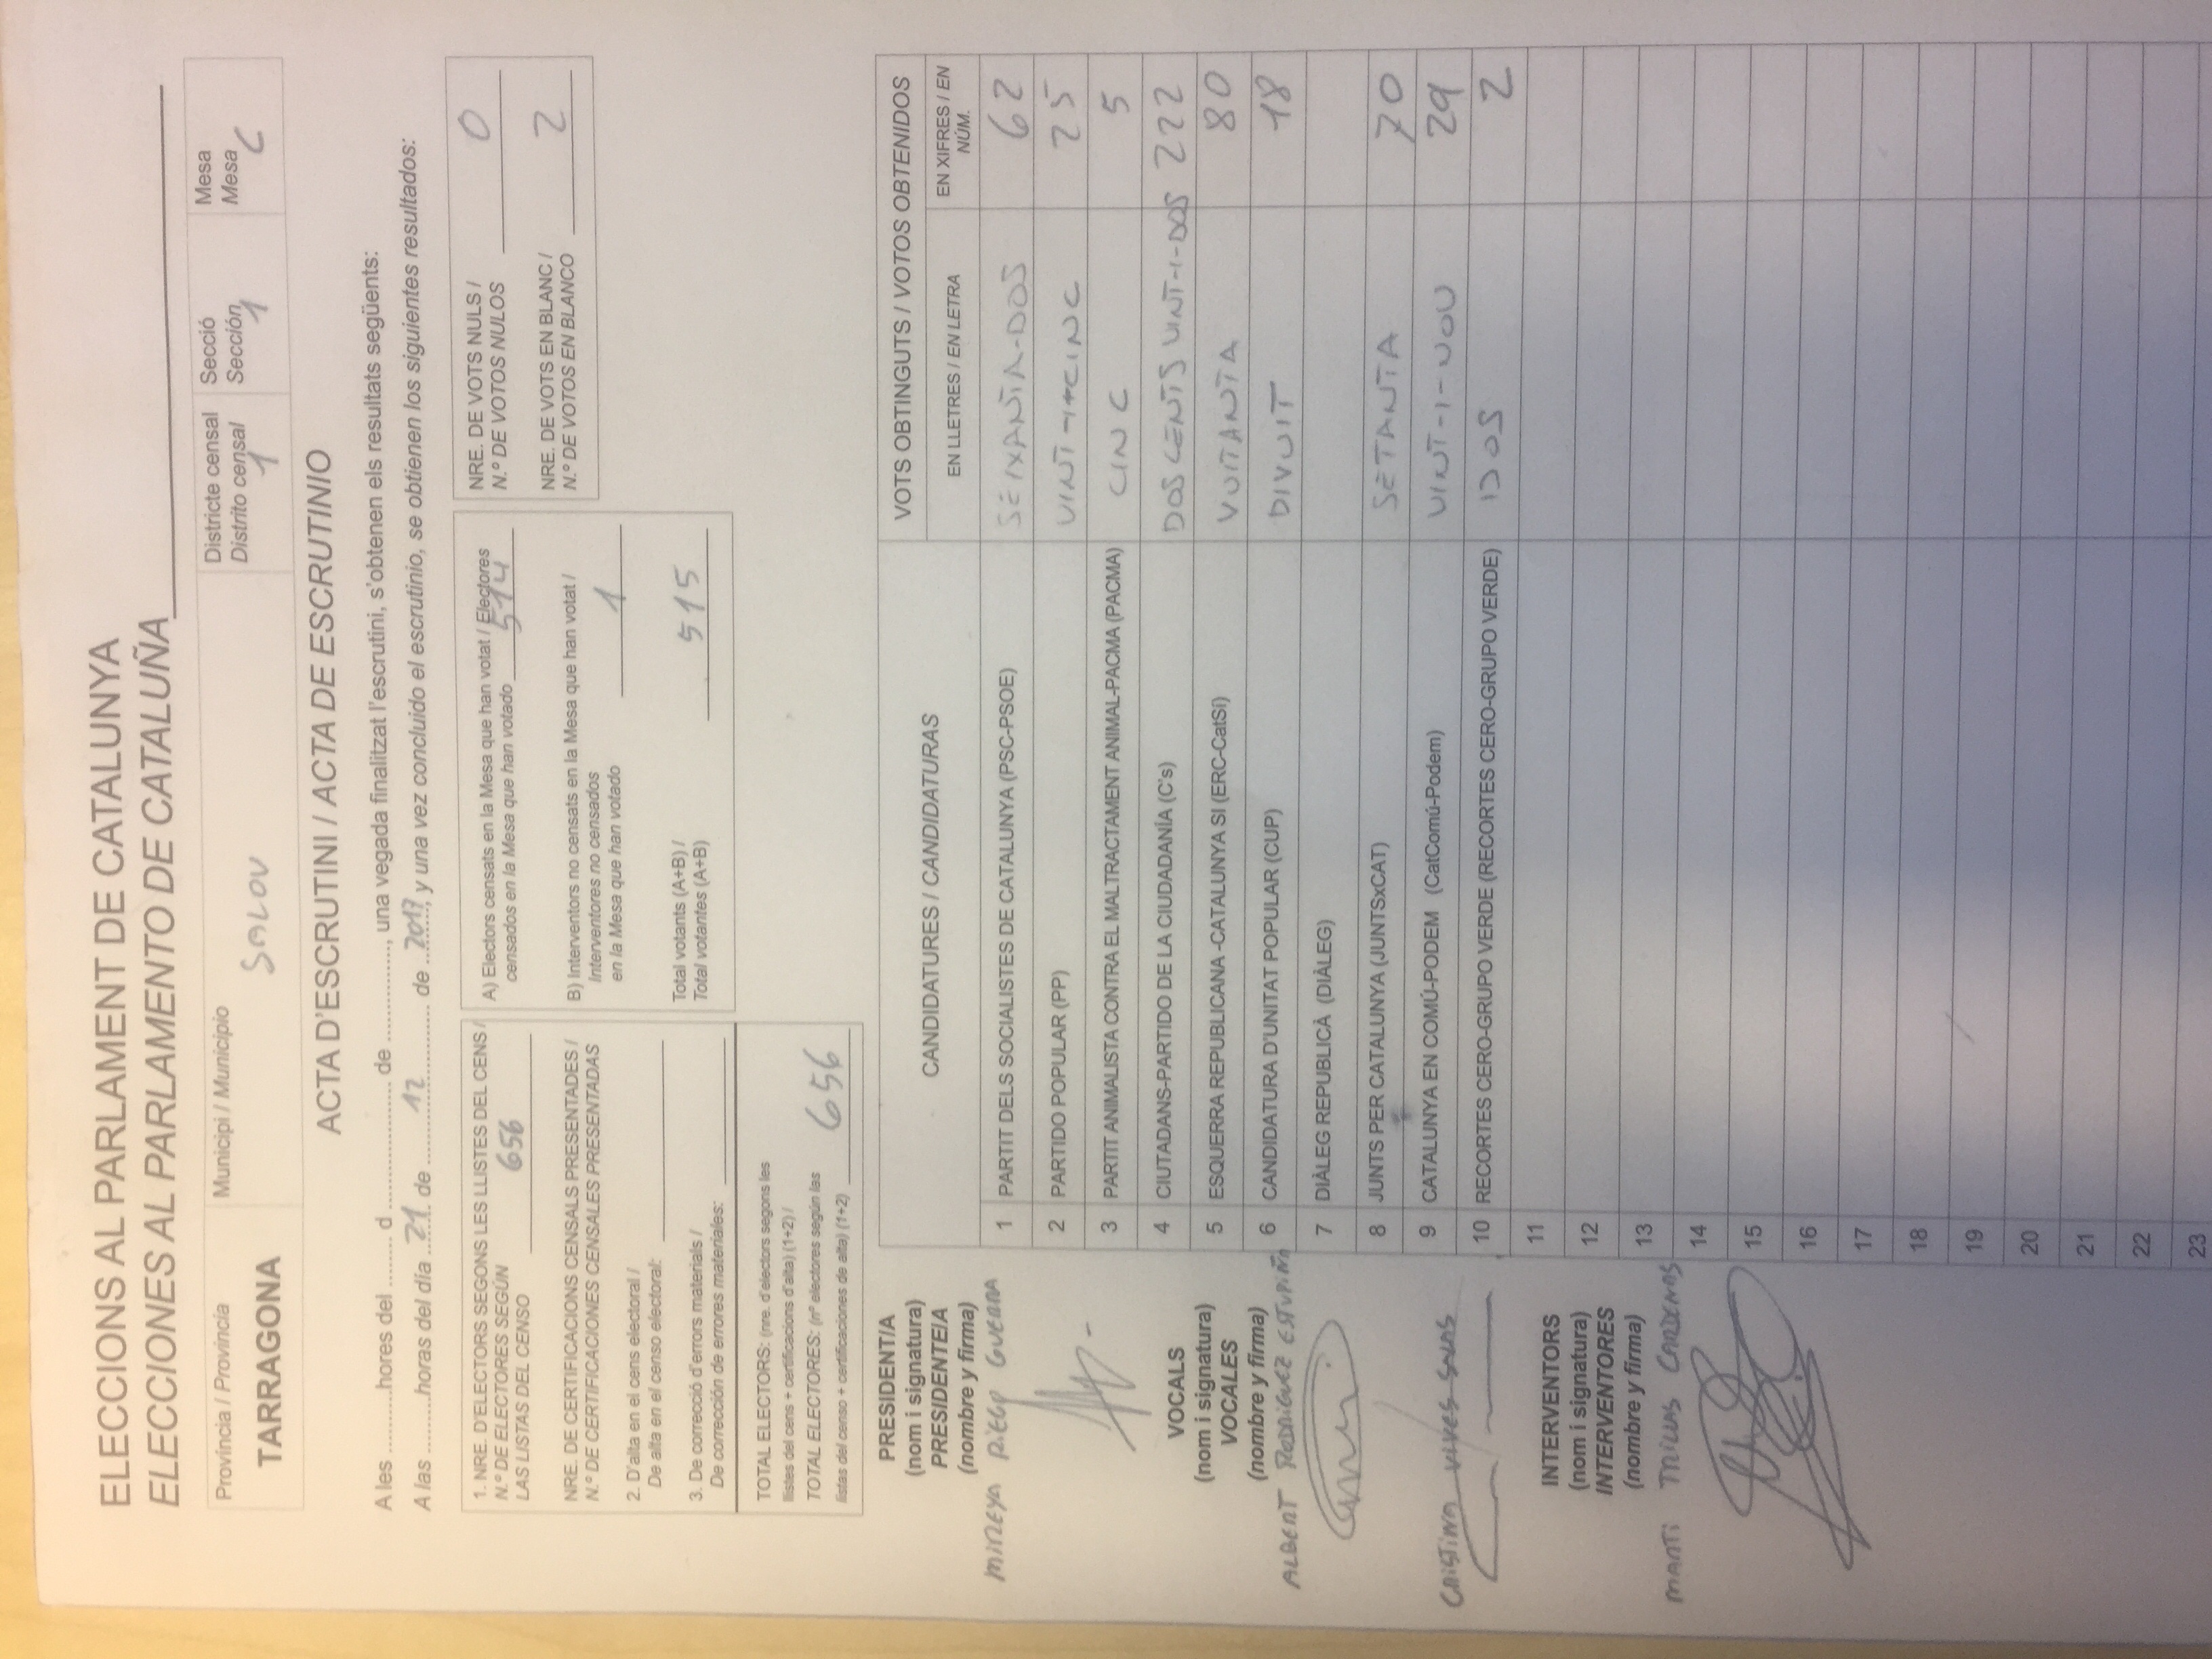 ELECCIONS AL PARLAMENT DE CATALUNYA
ELECCIONES AL PARLAMENTO DE CATALUÑA
Província / Provincia
TARRAGONA
Municipi / Municipio
SALOU
Districte censal
Distrito censal
1
Secció
Sección
1
Mesa
Mesa
C
ACTA D'ESCRUTINI / ACTA DE ESCRUTINIO
A les .........hores del ....... d .................... de ..............., una vegada finalitzat l'escrutini, s'obtenen els resultats següents:
A las .........horas del día 21 de 12 de 2017, y una vez concluido el escrutinio, se obtienen los siguientes resultados:
1. NRE. D'ELECTORS SEGONS LES LLISTES DEL CENS /
N.º DE ELECTORES SEGÚN
LAS LISTAS DEL CENSO 656
NRE. DE CERTIFICACIONS CENSALS PRESENTADES /
N.º DE CERTIFICACIONES CENSALES PRESENTADAS
2. D'alta en el cens electoral /
De alta en el censo electoral:
3. De correcció d'errors materials /
De corrección de errores materiales:
TOTAL ELECTORS: (nre. d'electors segons les
llistes del cens + certificacions d'alta) (1+2) /
TOTAL ELECTORES: (nº electores según las
listas del censo + certificaciones de alta) (1+2) 656
A) Electors censats en la Mesa que han votat / Electores
censados en la Mesa que han votado 514
B) Interventors no censats en la Mesa que han votat /
Interventores no censados
en la Mesa que han votado 1
Total votants (A+B) /
Total votantes (A+B) 515
NRE. DE VOTS NULS /
N.º DE VOTOS NULOS 0
NRE. DE VOTS EN BLANC /
N.º DE VOTOS EN BLANCO 2
PRESIDENT/A
(nom i signatura)
PRESIDENTE/A
(nombre y firma)
MIREYA RIEGO GUERRA
VOCALS
(nom i signatura)
VOCALES
(nombre y firma)
ALBERT RODRIGUEZ ESTUPIÑA
CRISTINA VIVES SALAS
INTERVENTORS
(nom i signatura)
INTERVENTORES
(nombre y firma)
MARTI TRILLAS CARDENAS
CANDIDATURES / CANDIDATURAS
VOTS OBTINGUTS / VOTOS OBTENIDOS
EN LLETRES / EN LETRA
EN XIFRES / EN
NÚM.
1 PARTIT DELS SOCIALISTES DE CATALUNYA (PSC-PSOE) SEIXANTA-DOS 62
2 PARTIDO POPULAR (PP) VINT-I-CINC 25
3 PARTIT ANIMALISTA CONTRA EL MALTRACTAMENT ANIMAL-PACMA (PACMA) CINC 5
4 CIUTADANS-PARTIDO DE LA CIUDADANÍA (C's) DOSCENTS VINT-I-DOS 222
5 ESQUERRA REPUBLICANA -CATALUNYA SI (ERC-CatSí) VUITANTA 80
6 CANDIDATURA D'UNITAT POPULAR (CUP) DIVUIT 18
7 DIÀLEG REPUBLICÀ (DIÀLEG)
8 JUNTS PER CATALUNYA (JUNTSxCAT) SETANTA 70
9 CATALUNYA EN COMÚ-PODEM (CatComú-Podem) VINT-I-NOU 29
10 RECORTES CERO-GRUPO VERDE (RECORTES CERO-GRUPO VERDE) DOS 2
11
12
13
14
15
16
17
18
19
20
21
22
23